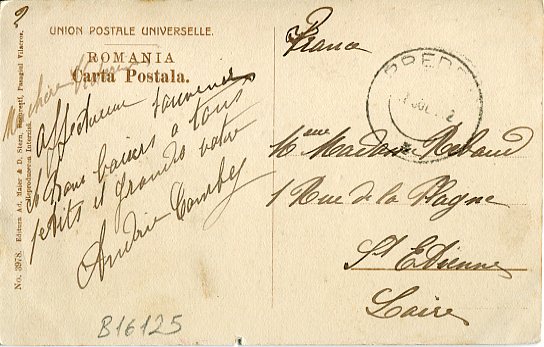 UNION POSTALE UNIVERSELLE.
ROMANIA
Carta Postala.
No. 3978. Editura Ad. Maier & D. Stern, București, Pasagiul Vilacros.
Reproducerea Interzisă
Ma chère
affectueux souvenirs
et bons baisers à tous
petits et grands votre
France
PREDE
Mme Madame Reboud
1 Rue de la Plagne
St Etienne
Loire
B16125